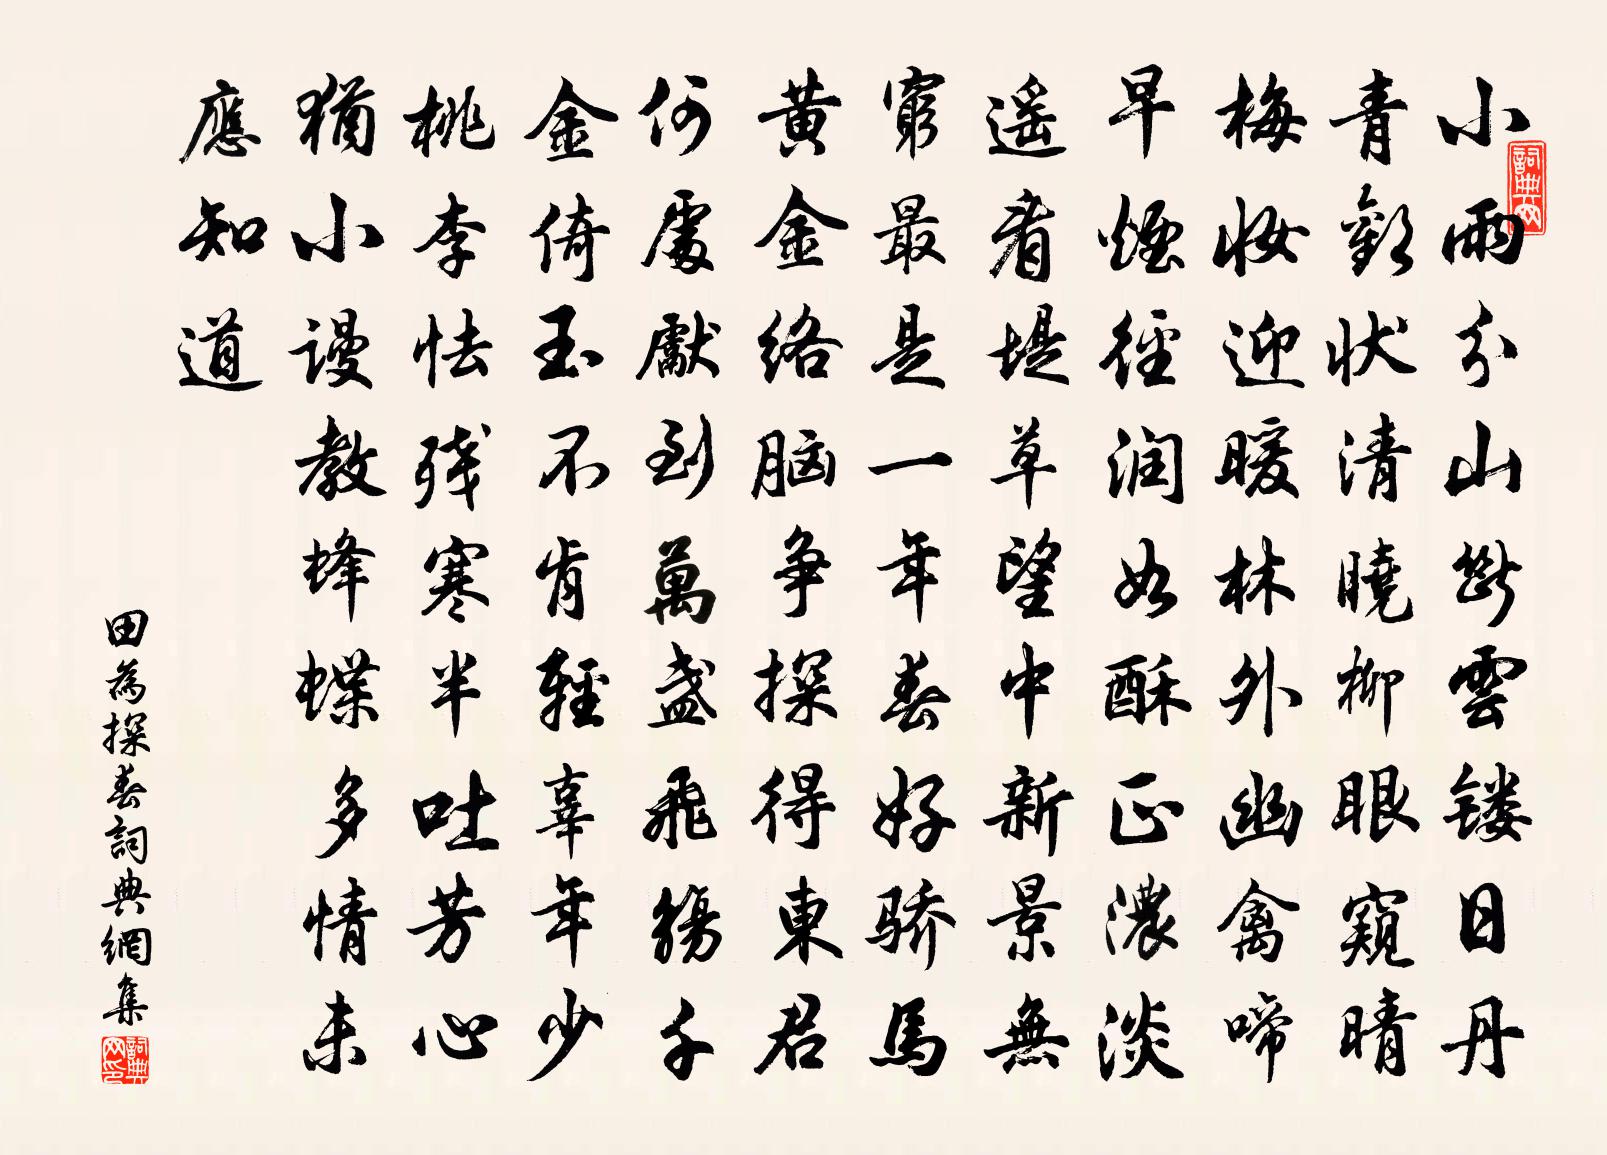 小雨分山斷雲镂日丹
青難状清曉柳眼窺晴
梅妝迎暖林外幽禽啼
早煙徑润如酥正濃淡
遥看堤草望中新景無
窮最是一年春好骄馬
黄金络脑争探得東君
何處獻到萬盏飛觴千
金倚玉不肯輕辜年少
桃李怯残寒半吐芳心
猶小谩教蜂蝶多情未
應知道
田為探春詞典網集
詞典网
詞典网印